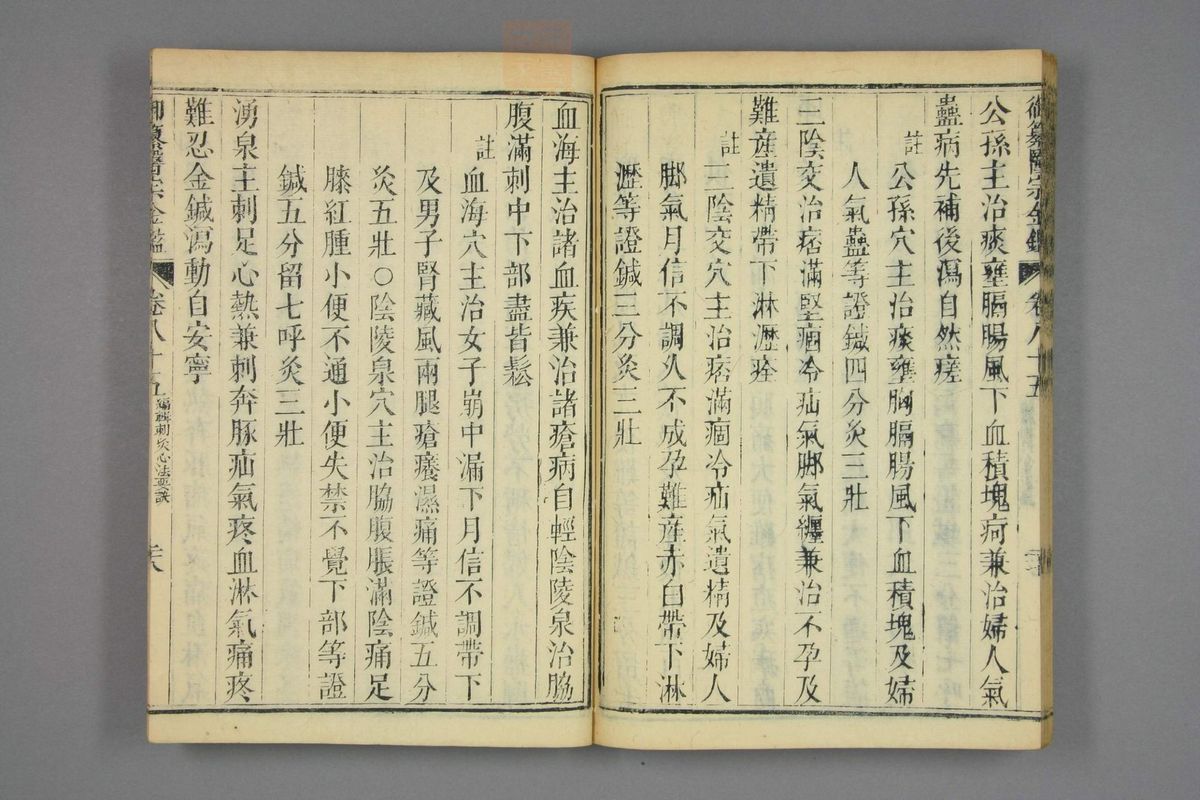 御纂醫宗金鑑 卷八十五
公孫主治痰壅膈腸風下血積塊疴兼治婦人氣
蠱病先補後瀉自然瘥
註
公孫穴主治痰壅胸膈腸風下血積塊及婦
人氣蠱等證鍼四分灸三壯
三陰交治痞滿堅痼冷疝氣脚氣纏兼治不孕及
難產遺精帶下淋瀝痊
註
三陰交穴主治痞滿痼冷疝氣遺精及婦人
脚氣月信不調久不成孕難產赤白帶下淋
瀝等證鍼三分灸三壯
血海主治諸血疾兼治諸瘡病自輕陰陵泉治脇
腹滿刺中下部盡皆鬆
註
血海穴主治女子崩中漏下月信不調帶下
及男子腎藏風兩腿瘡癢濕痛等證鍼五分
灸五壯〇陰陵泉穴主治脇腹脹滿陰痛足
膝紅腫小便不通小便失禁不覺下部等證
鍼五分留七呼灸三壯
湧泉主刺足心熱兼刺奔豚疝氣疼血淋氣痛疼
難忍金鍼瀉動自安寧
御纂醫宗金鑑 卷八十五 編輯刺灸心法要訣 二八